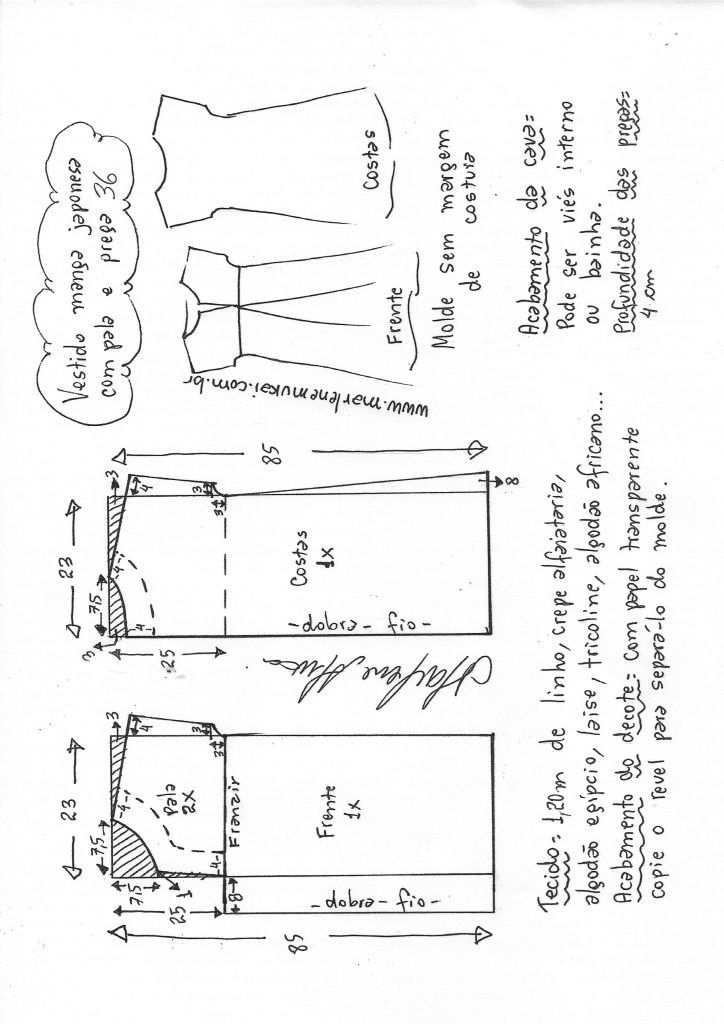 Vestido manga japonesa
com pala e prega 36
Costas
Frente
www.marlenemukai.com.br
Molde sem margem
de costura
Acabamento da cava=
Pode ser viés interno
ou bainha.
Profundidade das pregas=
4 cm
85
23
7,5
3
4
3
3
4
4
3
25
Costas
1x
-dobra - fio-
8
Marlene Mukai
85
23
7,5
7,5
3
4
3
3
4
4
1
25
8
Pala
2x
Franzir
Frente
1x
-dobra - fio-
Tecido= 1,20m de linho, crepe alfaiataria,
algodão egípcio, laise, tricoline, algodão africano...
Acabamento do decote= com papel transparente
copie o revel para separa-lo do molde.